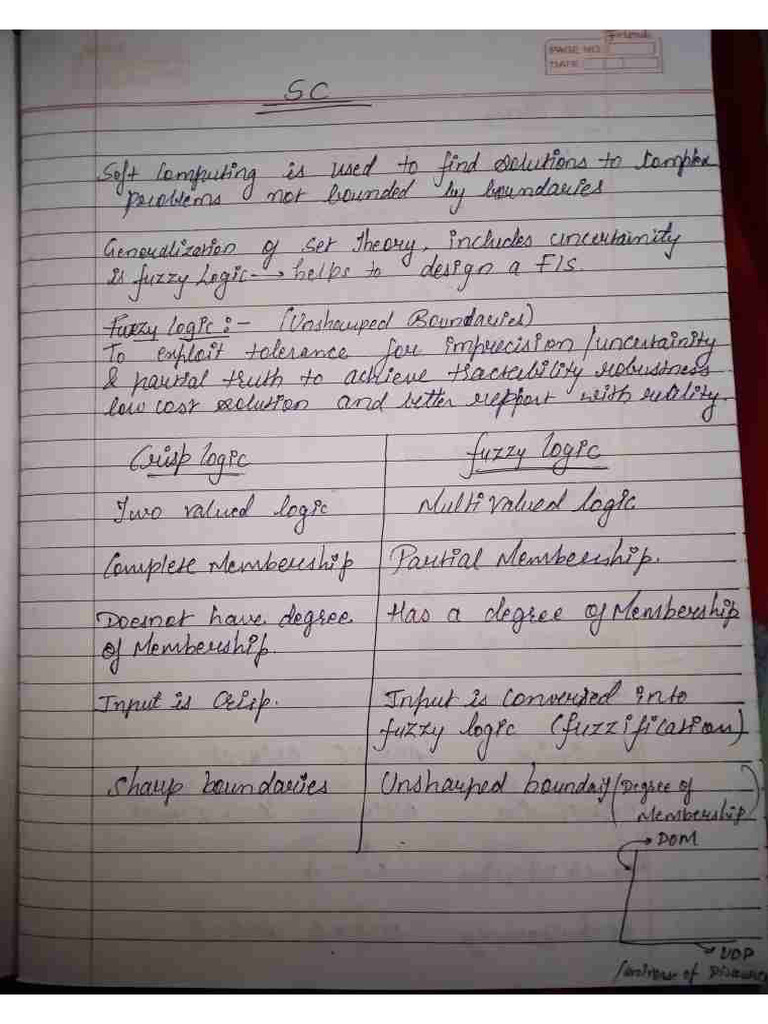 Friend
PAGE NO.
DATE
SC
Soft Computing is used to find solutions to Complex
problems not bounded by boundaries
Generalization of set theory, includes uncertainity
is fuzzy Logic → helps to design a FIS.
Fuzzy logic :- (Unsharped Boundaries)
To exploit tolerance for imprecision/uncertainity
& partial truth to achieve tractability robustness
low cost solution and better repport with
Crisp logic
fuzzy logic
Two valued logic
Multivalued logic
Complete Membership
Partial Membership.
Doesnot have degree
of Membership.
Has a degree of Membership
Input is Crisp.
Input is Converted into
fuzzy logic (fuzzification)
Sharp boundaries
Unsharped boundary (Degree of
Membership)
→ DOM
→ UOD
(universe of